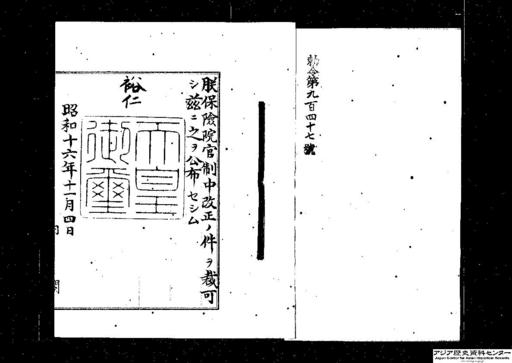 勅令第九百四十七號
朕保險院官制中改正ノ件ヲ裁可
シ茲ニ之ヲ公布セシム
裕仁
天皇
御璽
昭和十六年十一月四日
アジア歴史資料センター
Japan Center for Asian Historical Records